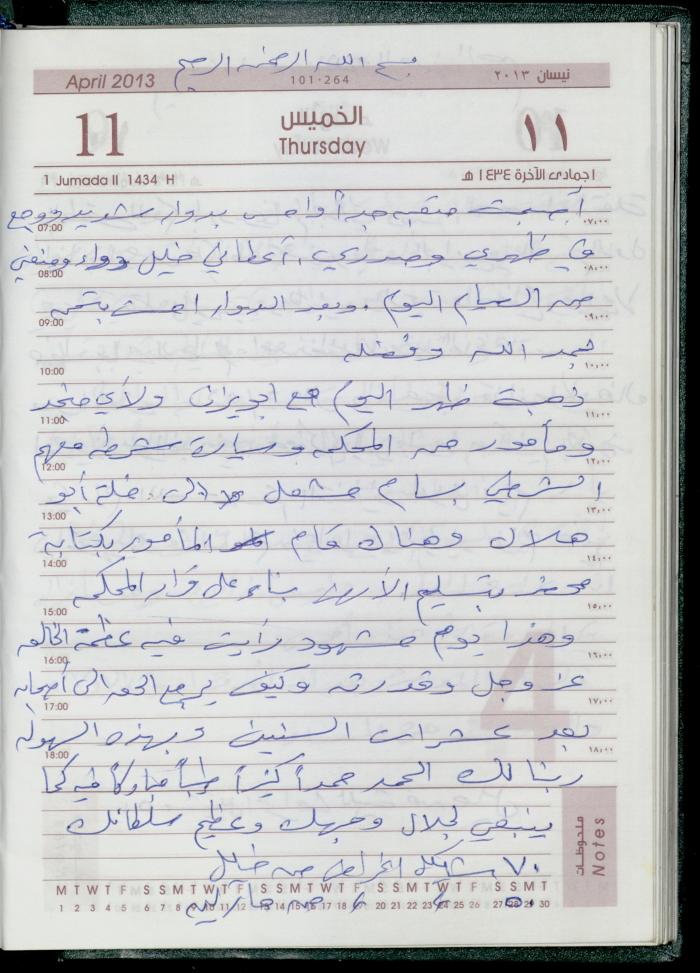 بسم الله الرحمن الرحيم
April 2013 101-264 نيسان ٢٠١٣
11 الخميس ١١
Thursday
1 Jumada II 1434 H ١ جمادى الآخرة ١٤٣٤ هـ
أصبحت متعبه جداً واحس بدوار شديد ووجع
07:00 ٠٧:٠٠
في ظهري وصدري، أعطاني خليل دواء ومنعني
08:00 ٠٨:٠٠
من الصيام اليوم. وبعد الدوار احسن بتحسن
09:00 ٠٩:٠٠
بحمد الله وفضله
10:00 ١٠:٠٠
ذهبت ظهر اليوم مع ابو يزن ولأي
11:00 ١١:٠٠
ومأمور من المحكمه وسيارة شرطه معهم
12:00 ١٢:٠٠
الشرطي بسام مشعل الى خلة أبو
13:00 ١٣:٠٠
هلال وهناك قام المأمور بكتابة
14:00 ١٤:٠٠
محضر بتسليم الأرض بناء على قرار المحكمه
15:00 ١٥:٠٠
وهذا يوم مشهود رأيت فيه عظمة الخالق
16:00 ١٦:٠٠
عز وجل وقدرته وكيف يرجع الحق الى أصحابه
17:00 ١٧:٠٠
بعد عشرات السنين وبهذه السهوله
18:00 ١٨:٠٠
ربنا لك الحمد حمداً كثيراً طيباً مباركاً فيه كما
ينبغي لجلال وجهك وعظيم سلطانك
٧٠ شيكل من خليل
٥٠ من
ملحوظات Notes
M T W T F S S M T W T F S S M T W T F S S M T W T F S S M T
1 2 3 4 5 6 7 8 9 10 11 12 13 14 15 16 17 18 19 20 21 22 23 24 25 26 27 28 29 30